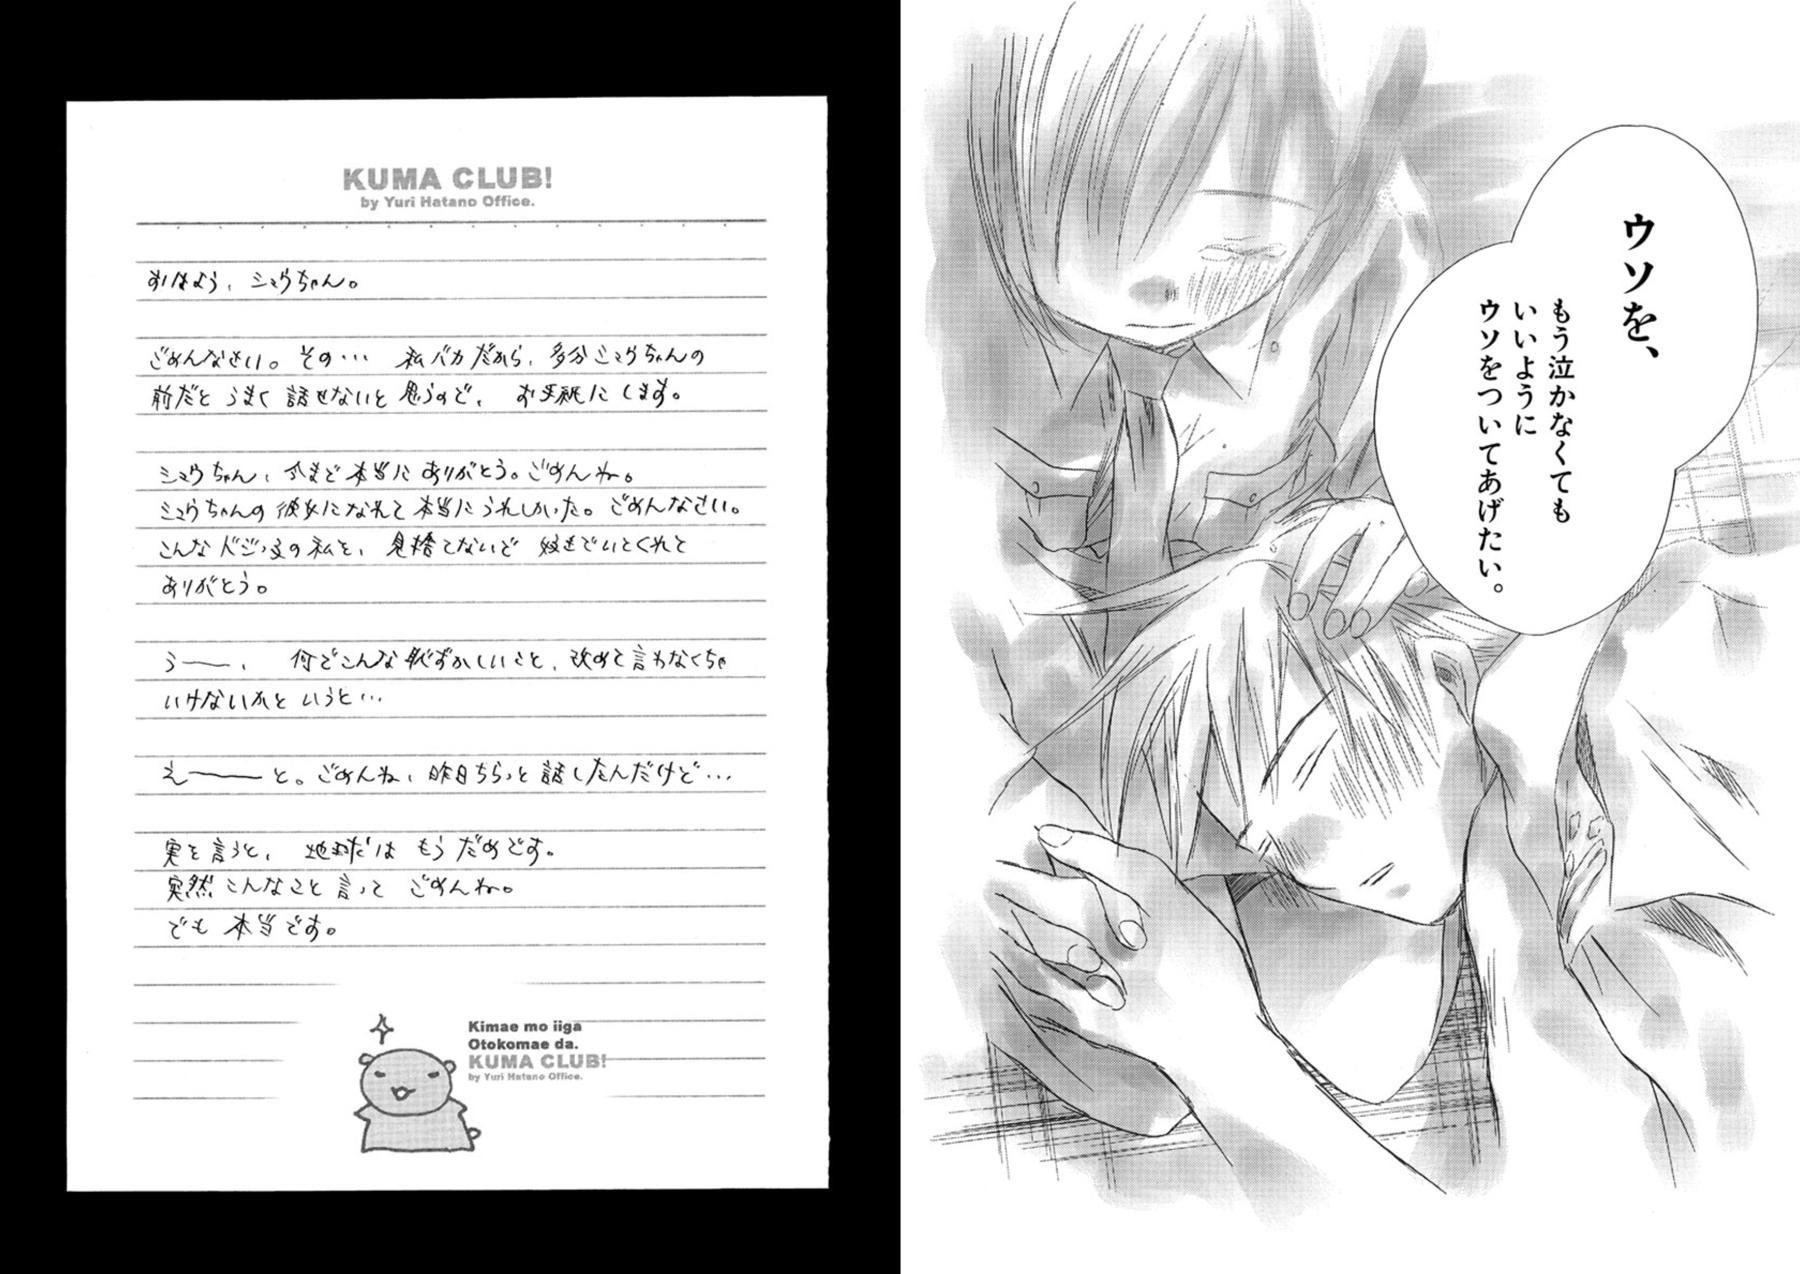 ウソを、
もう泣かなくても
いいように
ウソをついてあげたい。
KUMA CLUB!
by Yuri Hatano Office.
おはよう、シュウちゃん。
ごめんなさい。その… 私バカだから、多分シュウちゃんの
前だと うまく 話せないと 思うので、 お手紙に します。
シュウちゃん、今まで 本当に ありがとう。ごめんね。
シュウちゃんの 彼女になれて 本当に うれしかった。ごめんなさい。
こんな の 私を、 見捨てないで 好きでいてくれて
ありがとう。
う――、 何でこんな 恥ずかしいこと、改めて 言わなくちゃ
いけないかと いうと…
え――と。ごめんね、昨日ちらっと 話したんだけど…
実を言うと、 地球は もう だめです。
突然 こんなこと 言って ごめんね。
でも 本当です。
Kimae mo iiga
Otokomae da.
KUMA CLUB!
by Yuri Hatano Office.